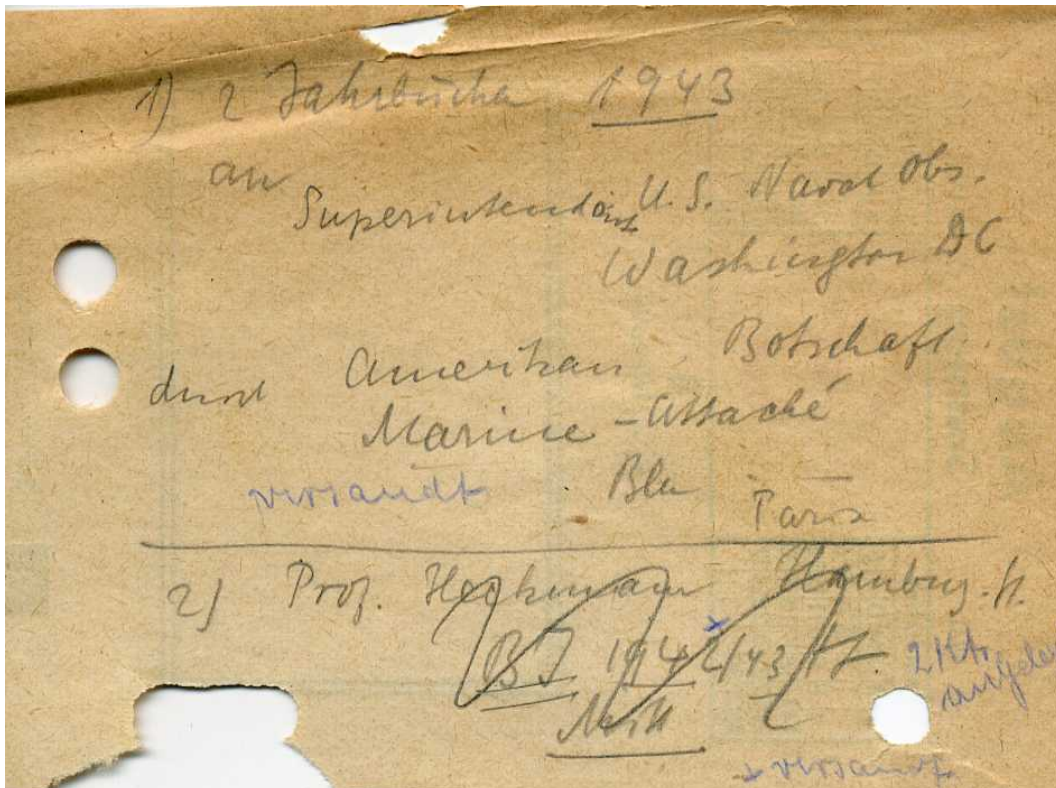 1) 2 Jahrbücher 1943
an
Superintendent U.S. Naval Obs.
Washington DC
durch Amerikan Botschaft
Marine-Attaché
versandt Bln
Paris
2) Prof. Heckmann Hamburg.
BJ 1942/43
2 Ktr.
* versandt